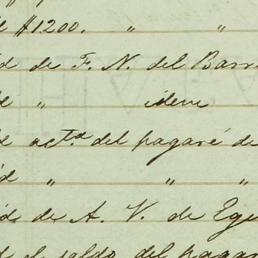 $1200. " "
de F. N. del Barr
" idem
act.ª del pagaré de
" " "
de A. V. de Egu
el saldo del pagar